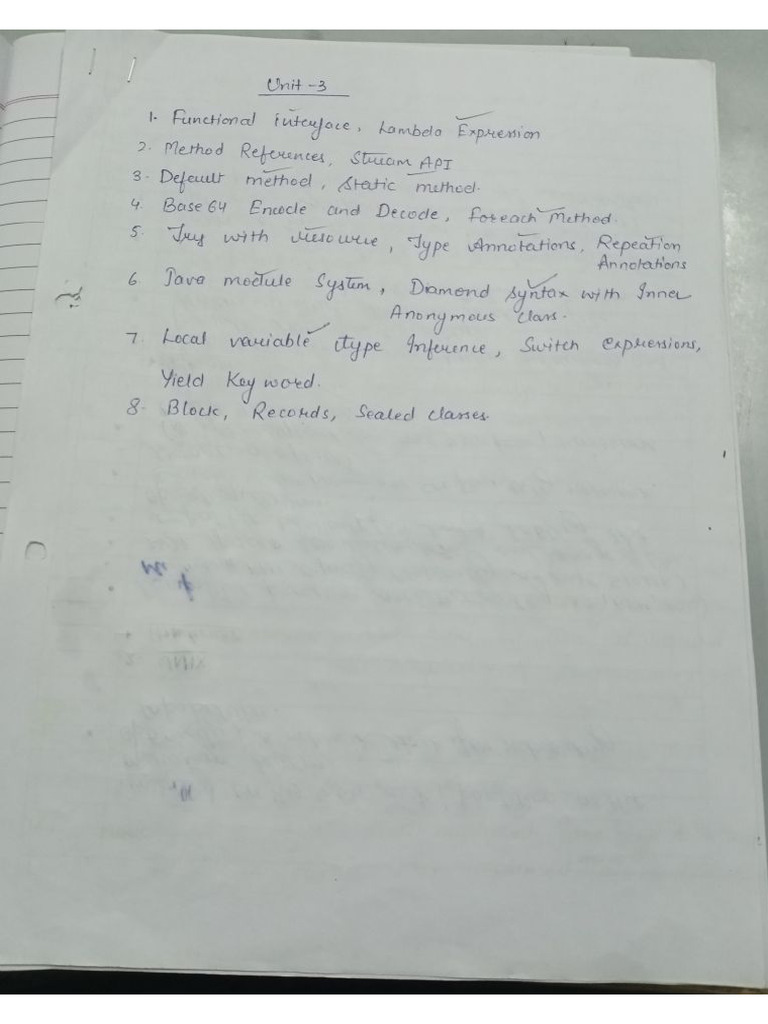 Unit-3
1. Functional interface, Lambda Expression
2. Method References, Stream API
3. Default method, Static method.
4. Base64 Encode and Decode, Foreach Method.
5. Try with resource, Type Annotations, Repeation
Annotations
6 Java module System, Diamond syntax with Inner
Anonymous class.
7. Local variable type Inference, Switch expressions,
Yield Key word.
8. Block, Records, Sealed classes.